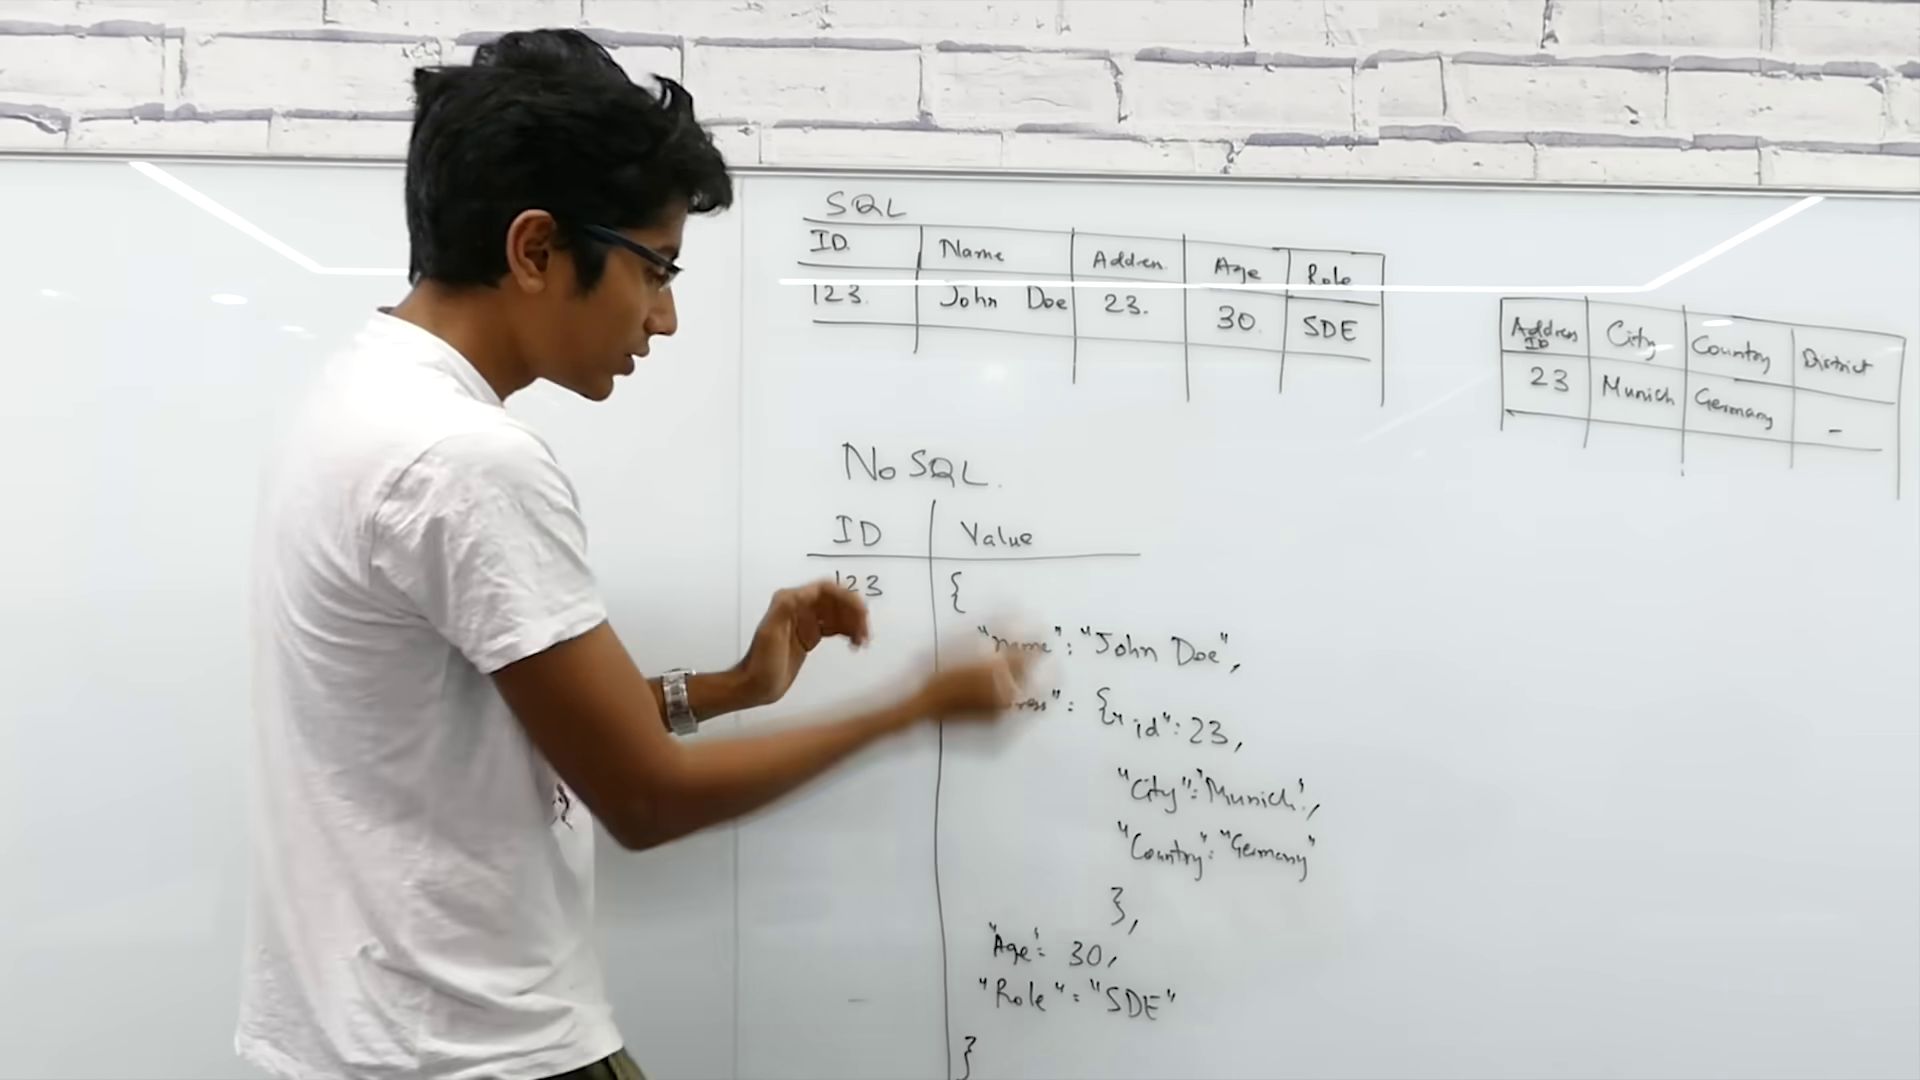 SQL
ID. Name Address. Age Role
123. John Doe 23. 30. SDE
Address ID City Country District
23 Munich Germany -
NoSQL.
ID Value
123 {
"name": "John Doe",
ress": {"id": 23,
"City": "Munich",
"Country": "Germany"
},
"Age": 30,
"Role": "SDE"
}